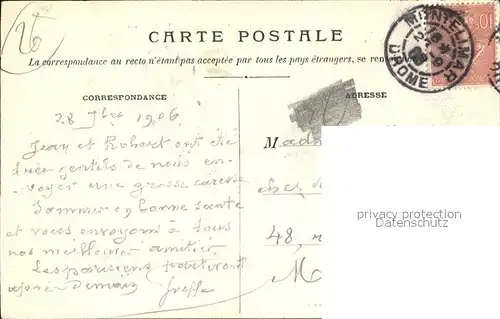 26
CARTE POSTALE
MONTELIMAR
DROME
10
La correspondance au recto n'étant pas acceptée par tous les pays étrangers, se
CORRESPONDANCE
ADRESSE
28 7bre 1906
Jean et Robert ont été
très gentils de nous en-
voyer une grosse caresse
Sommes en bonne santé
et vous envoyons à tous
nos meilleures amitiés
Les parisiens partiront
après demain
Mad
chez
48, r
privacy protection
Datenschutz